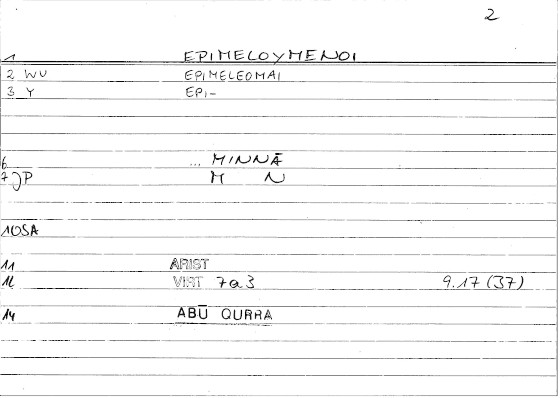 2
1 EPIMELOYMENOI
2 WU EPIMELEOMAI
3 Y EPI-
6 ... MINNĀ
7 JP M N
10SA
11 ARIST
12 VIRT 7a3 9.17 (37)
14 ABŪ QURRA